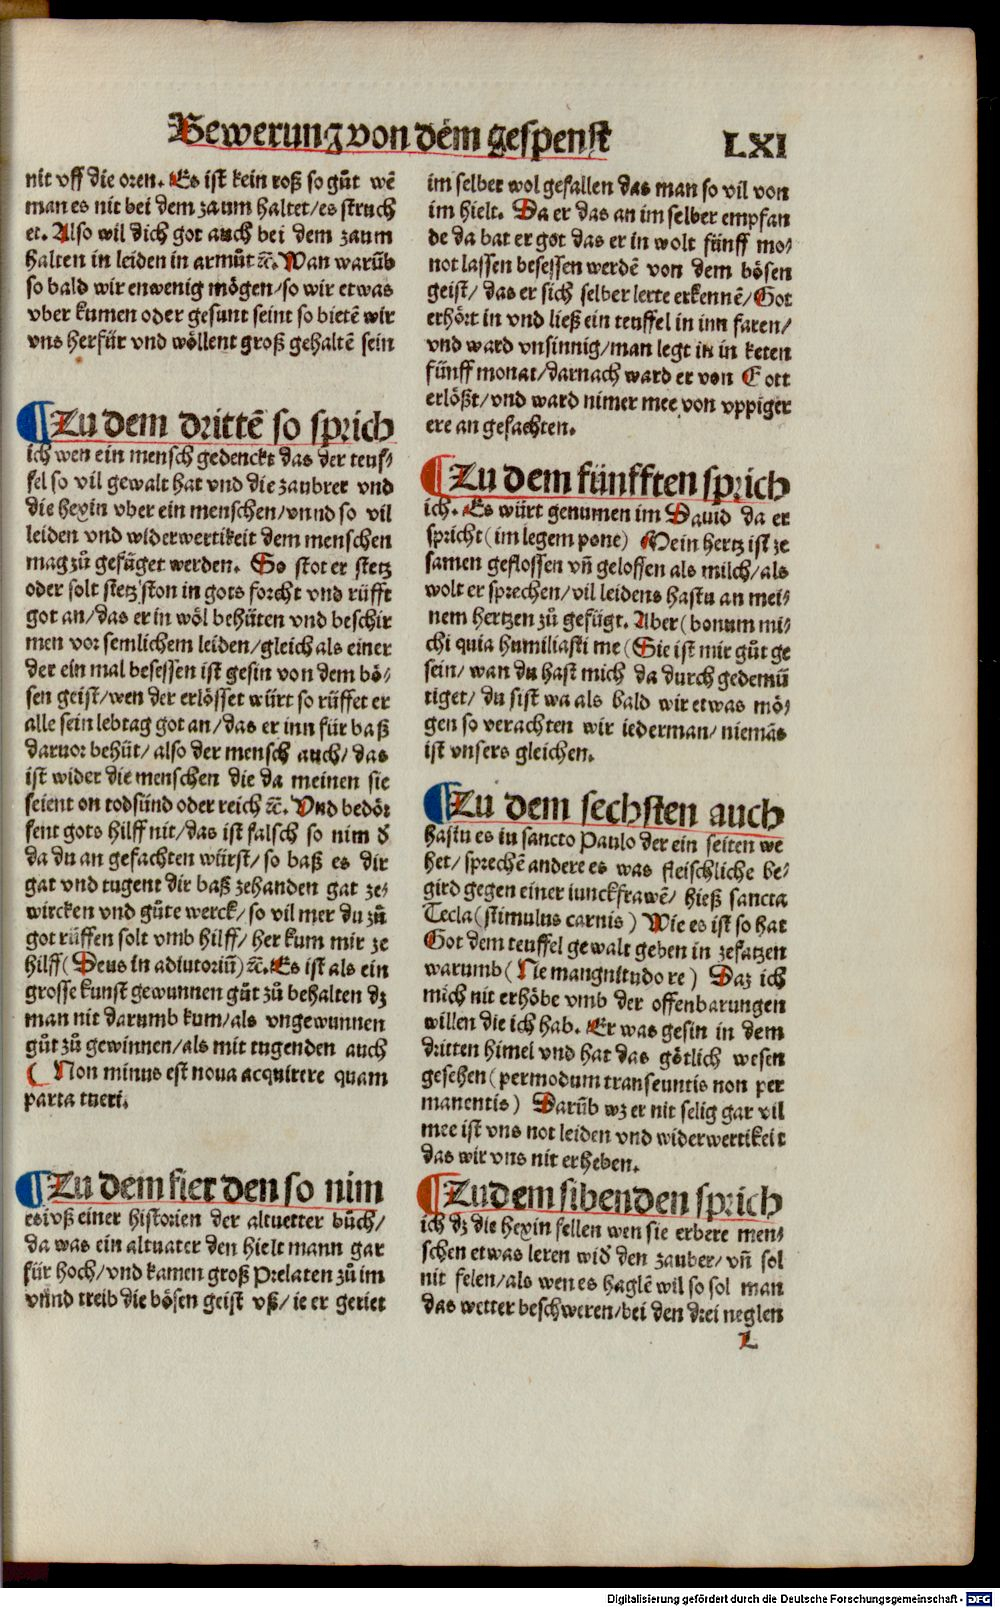 Bewerung von dem gespenst LXI
nit vff die oren. Es ist kein roß so gůt wē
man es nit bei dem zaum haltet/es struch
et. Also wil dich got auch bei dem zaum
halten in leiden in armůt ꝛc̄. Wan warūb
so bald wir enwenig mögen/so wir etwas
vber kumen oder gesunt seint so bietē wir
vns herfür vnd wöllent groß gehaltē sein
¶ Zu dem drittē so sprich
ich wen ein mensch gedenckt das der teuf⸗
fel so vil gewalt hat vnd die zaubrer vnd
die hexin vber ein menschen/vnnd so vil
leiden vnd widerwertikeit dem menschen
mag zů gefüget werden. So stot er stetz
oder solt stetz ston in gots forcht vnd rüfft
got an/das er in wöl behüten vnd beschir
men vor semlichem leiden/gleich als einer
der ein mal besessen ist gesin von dem bö⸗
sen geist/wen der erlösset würt so rüffet er
alle sein lebtag got an/das er inn für baß
daruor behüt/also der mensch auch/das
ist wider die menschen die da meinen sie
seient on todsünd oder reich ꝛc̄. Vnd bedör
fent gots hilff nit/das ist falsch so nim d̄
da du an gefachten würst/so baß es dir
gat vnd tugent dir baß zehanden gat ze⸗
wircken vnd gůte werck/so vil mer du zů
got rüffen solt vmb hilff/her kum mir ze
hilff(Deus in adiutoriū)ꝛc̄. Es ist als ein
grosse kunst gewunnen gůt zů behalten dz
man nit darumb kum/als vngewunnen
gůt zů gewinnen/als mit tugenden auch
( Non minus est noua acquirere quam
parta tueri.
¶ Zu dem fierden so nim
es vß einer historien der altuetter bůch/
da was ein altuater den hielt mann gar
für hoch/vnd kamen groß Prelaten zů im
vnnd treib die bösen geist vß/ie er geriet
im selber wol gefallen das man so vil von
im hielt. Da er das an im selber empfan
de da bat er got das er in wolt fünff mo⸗
not lassen besessen werdē von dem bösen
geist/das er sich selber lerte erkennē/Got
erhört in vnd ließ ein teuffel in inn faren/
vnd ward vnsinnig/man legt in in keten
fünff monat/darnach ward er von Gott
erlößt/vnd ward nimer mee von vppiger
ere an gefachten.
¶ Zu dem fünfften sprich
ich. Es würt genumen im Dauid da er
spricht(im legem pone) Mein hertz ist ze
samen geflossen vn̄ geloffen als milch/als
wolt er sprechen/vil leidens hastu an mei⸗
nem hertzen zů gefügt. Aber(bonum mi⸗
chi quia humiliasti me(Sie ist mir gůt ge
sein/wan du hast mich da durch gedemü
tiget/du sist wa als bald wir etwas mö⸗
gen so verachten wir iederman/niemās
ist vnsers gleichen.
¶ Zu dem sechsten auch
hastu es in sancto Paulo der ein seiten we
het/sprechē andere es was fleischliche be⸗
gird gegen einer iunckfrawē/hieß sancta
Tecla(stimulus carnis) Wie es ist so hat
Got dem teuffel gewalt geben in zefatzen
warumb(Ne mangnitudo re) Daz ich
mich nit erhöbe vmb der offenbarungen
willen die ich hab. Er was gesin in dem
dritten himel vnd hat das götlich wesen
gesehen(permodum transeuntis non per
manentis) Darūb wz er nit selig gar vil
mee ist vns not leiden vnd widerwertikeit
das wir vns nit erheben.
¶ Zu dem sibenden sprich
ich dz die hexin fellen wen sie erbere men⸗
schen etwas leren wid̄ den zauber/vn̄ sol
nit felen/als wen es haglē wil so sol man
das wetter beschweren/bei den drei neglen
L
Digitalisierung gefördert durch die Deutsche Forschungsgemeinschaft - DFG